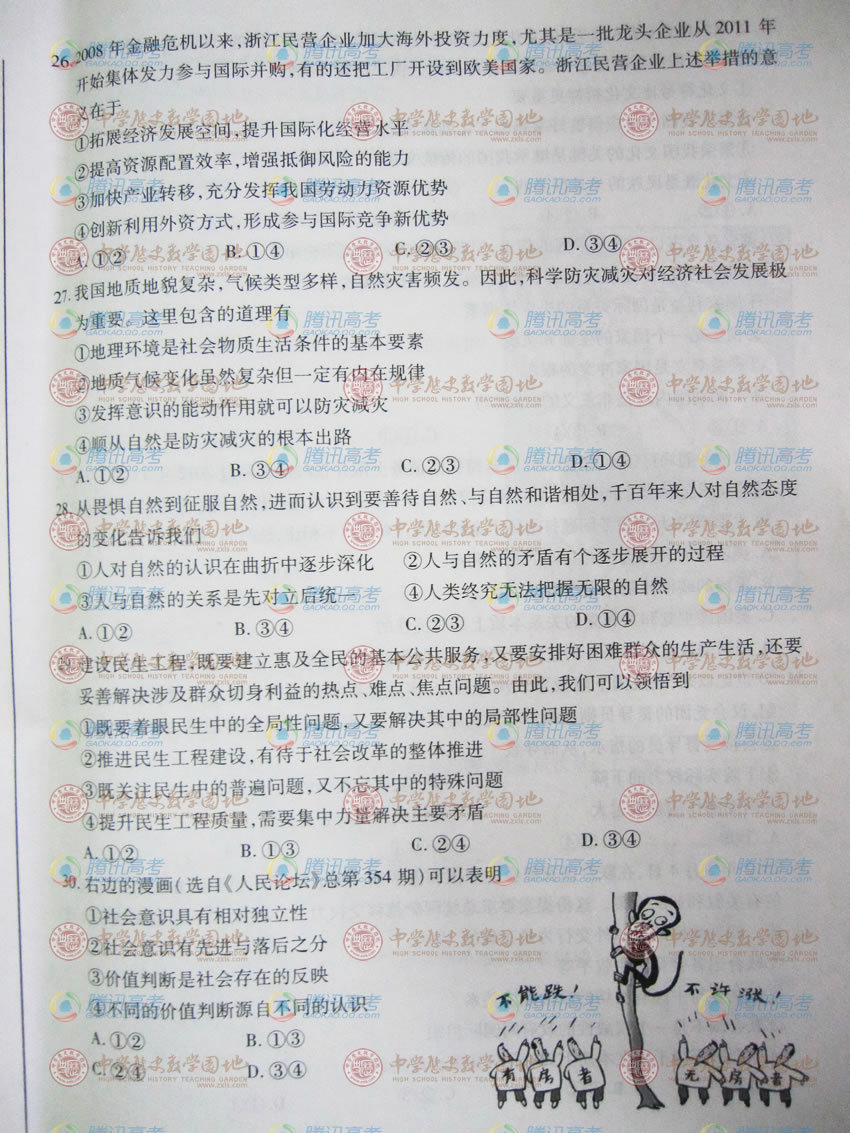 26. 2008 年金融危机以来,浙江民营企业加大海外投资力度,尤其是一批龙头企业从 2011 年
开始集体发力参与国际并购,有的还把工厂开设到欧美国家。浙江民营企业上述举措的意
义在于
①拓展经济发展空间,提升国际化经营水平
②提高资源配置效率,增强抵御风险的能力
③加快产业转移,充分发挥我国劳动力资源优势
④创新利用外资方式,形成参与国际竞争新优势
A. ①② B. ①④ C. ②③ D. ③④
27. 我国地质地貌复杂,气候类型多样,自然灾害频发。因此,科学防灾减灾对经济社会发展极
为重要。这里包含的道理有
①地理环境是社会物质生活条件的基本要素
②地质气候变化虽然复杂但一定有内在规律
③发挥意识的能动作用就可以防灾减灾
④顺从自然是防灾减灾的根本出路
A. ①② B. ③④ C. ②③ D. ①④
28. 从畏惧自然到征服自然,进而认识到要善待自然、与自然和谐相处,千百年来人对自然态度
的变化告诉我们
①人对自然的认识在曲折中逐步深化 ②人与自然的矛盾有个逐步展开的过程
③人与自然的关系是先对立后统一 ④人类终究无法把握无限的自然
A. ①② B. ③④ C. ②③ D. ①④
29. 建设民生工程,既要建立惠及全民的基本公共服务,又要安排好困难群众的生产生活,还要
妥善解决涉及群众切身利益的热点、难点、焦点问题。由此,我们可以领悟到
①既要着眼民生中的全局性问题,又要解决其中的局部性问题
②推进民生工程建设,有待于社会改革的整体推进
③既关注民生中的普遍问题,又不忘其中的特殊问题
④提升民生工程质量,需要集中力量解决主要矛盾
A. ①② B. ①③ C. ②④ D. ③④
30. 右边的漫画(选自《人民论坛》总第 354 期)可以表明
①社会意识具有相对独立性
②社会意识有先进与落后之分
③价值判断是社会存在的反映
④不同的价值判断源自不同的认识
A. ①② B. ①③
C. ②④ D. ③④
不能跌!
不许涨!
有房者
无房者
腾讯高考
GAOKAO.QQ.COM
中学历史教学园地
HIGH SCHOOL HISTORY TEACHING GARDEN
www.zxls.com